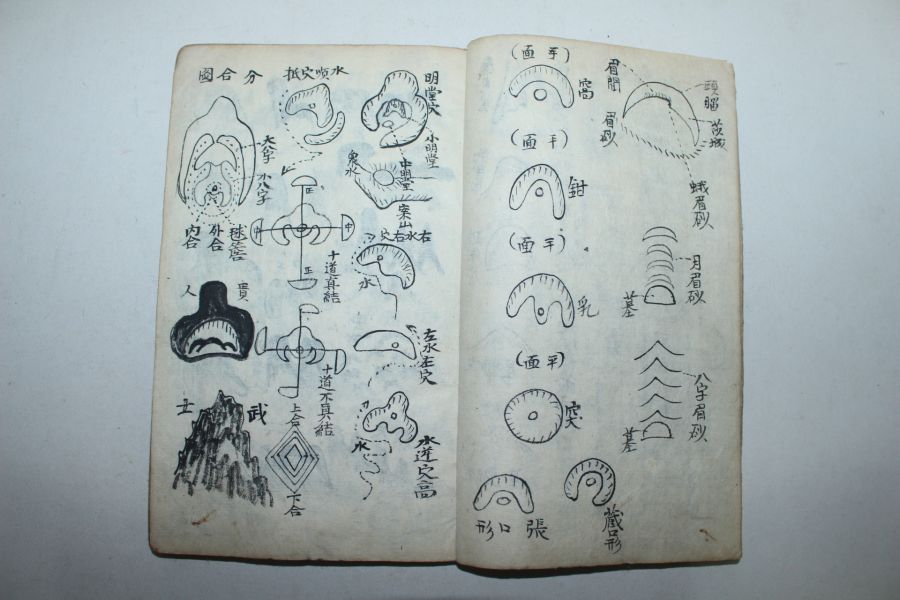 眉間
眉砂
頭腦
茨城
蛾眉砂
月眉砂
墓
八字眉砂
墓
(面平)
窩
(面平)
鉗
(面平)
乳
(面平)
突
形口張
藏口形
明堂穴
小明堂
中明堂
案山
穴右水右
水
左水左穴
水
水逆穴高
抵穴噴水
十道眞結
十道不具結
上合
下合
圖合分
大八字
小八字
內合
外合
人貴
士武